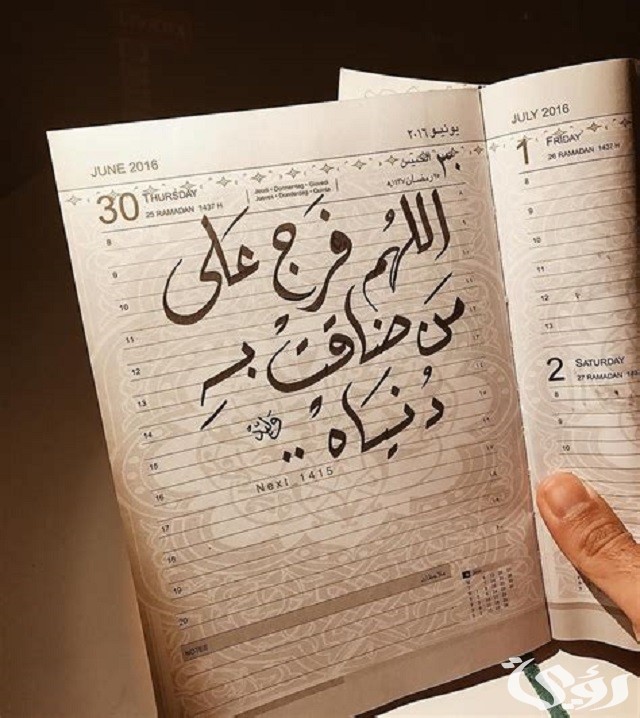 JUNE 2016
يونيو ٢٠١٦
30 THURSDAY
25 RAMADAN 1437 H
Jeudi - Donnerstag - Giovedi
٣٠ الخميس
٢٥ رمضان ١٤٣٧هـ
اللهم فرج على
من ضاقت به
دنياه ..
Next_1415
8
9
10
11
12
13
14
15
16
17
18
19
20
NOTES
ملاحظات
JULY 2016
1 FRIDAY
26 RAMADAN 1437 H
8
9
10
11
12
13
2 SATURDAY
27 RAMADAN
8
9
10
رؤية